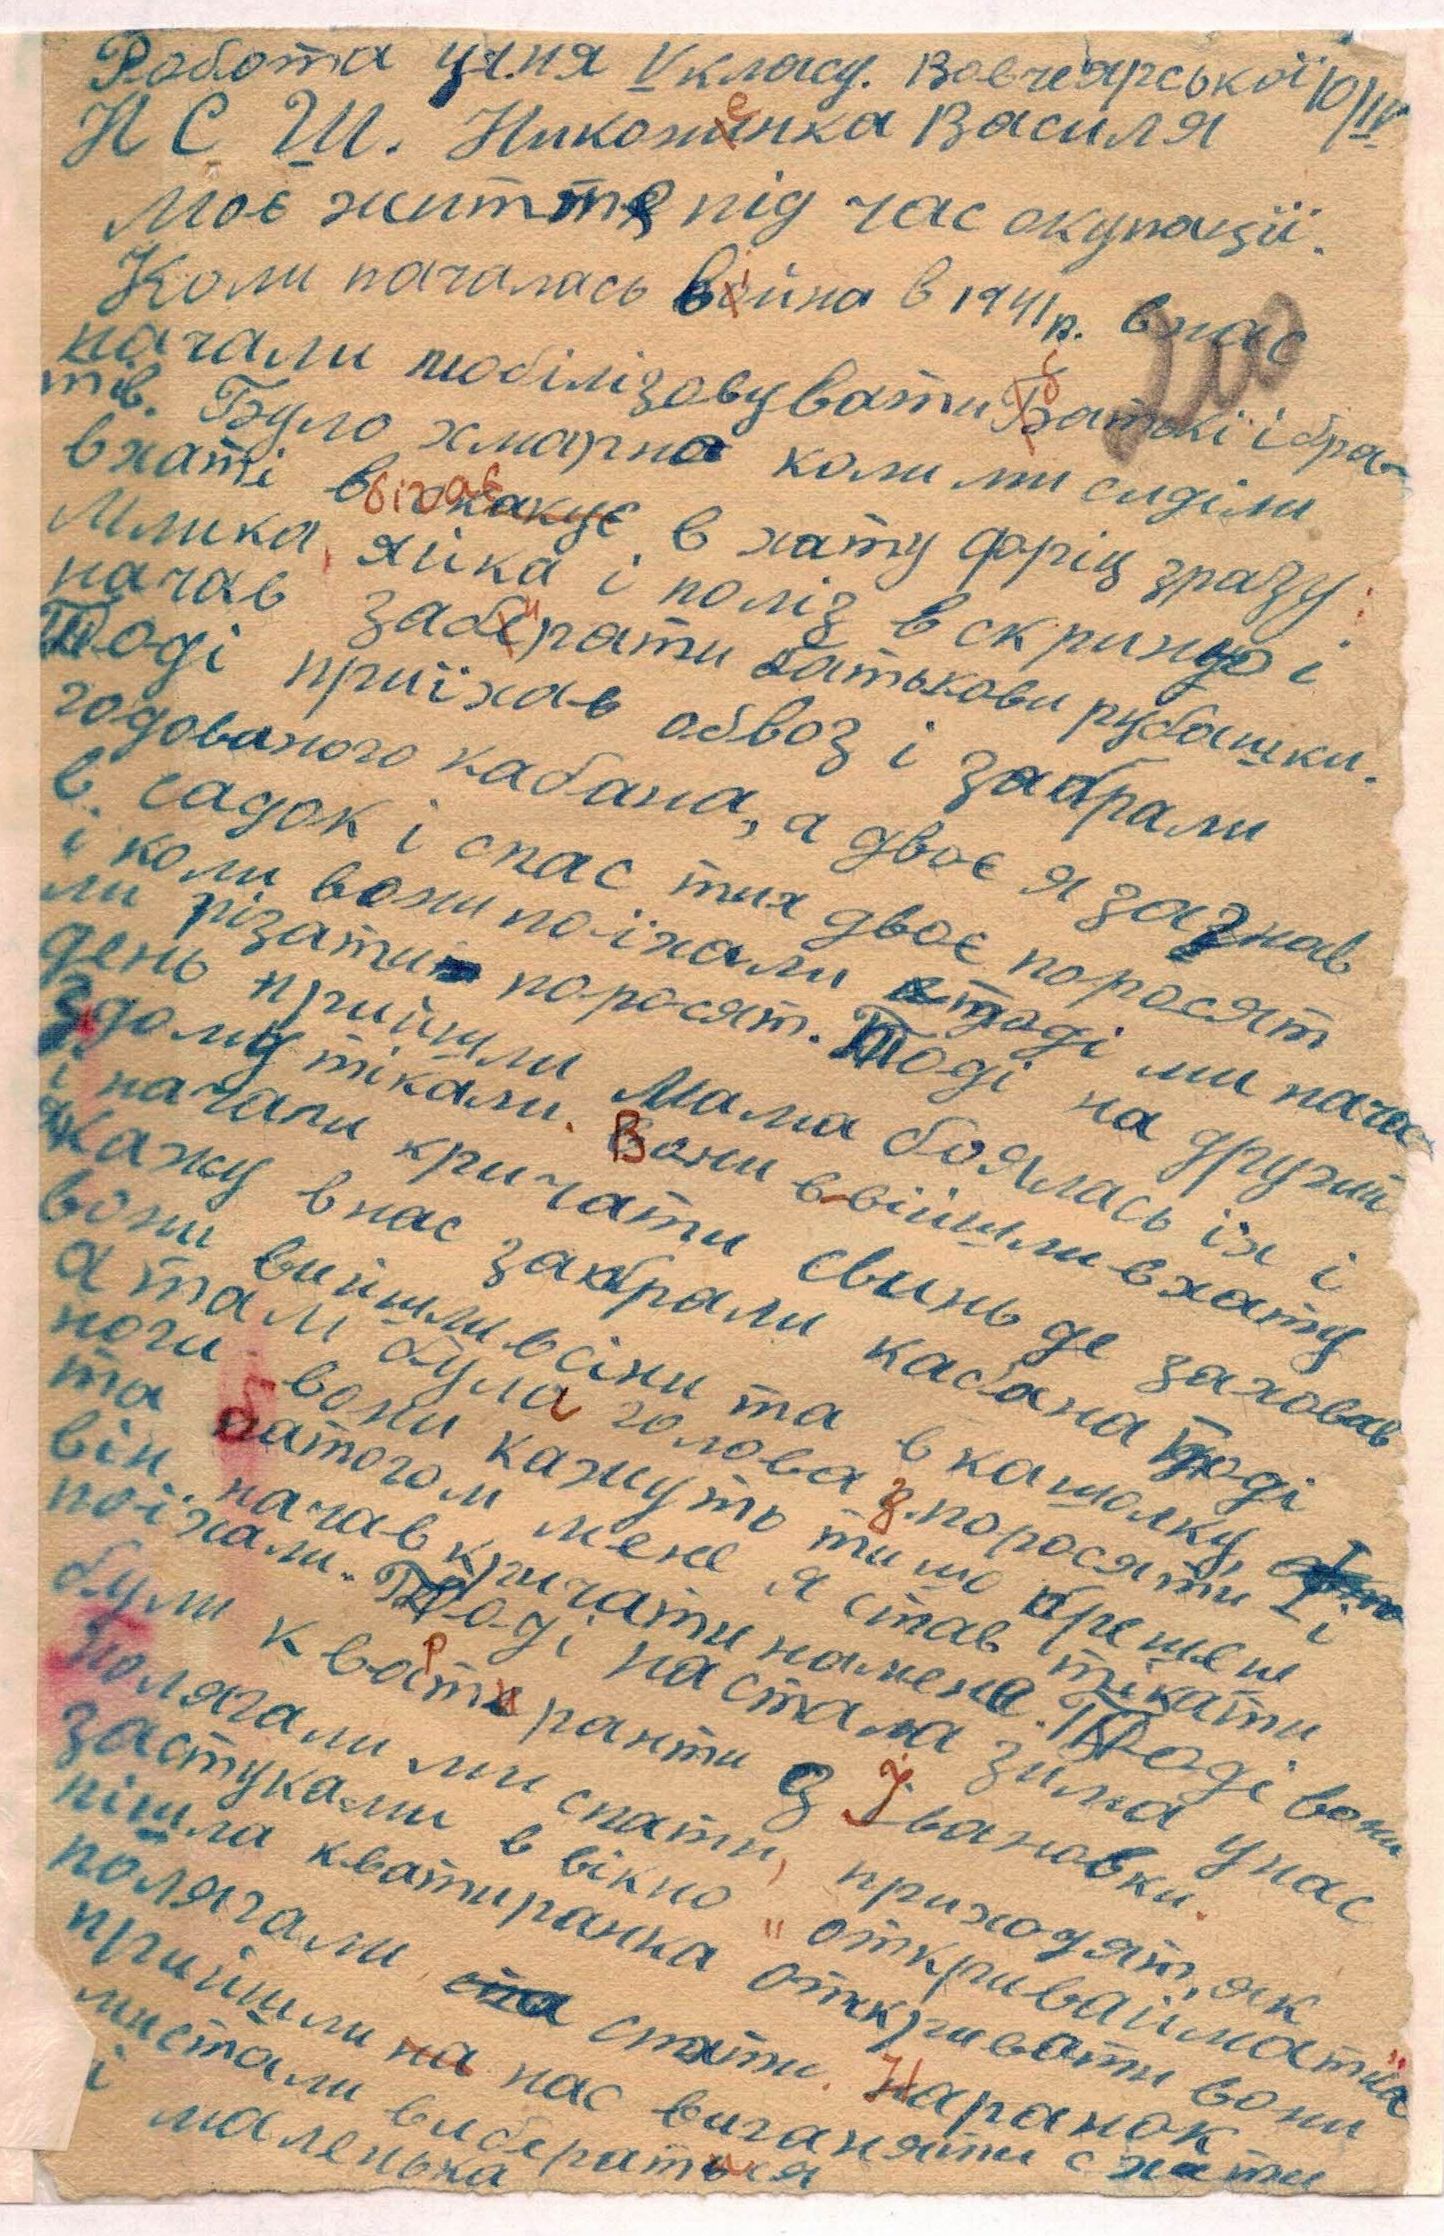 Работа учня V класу. Вовчеярської 10/IV
Н С Ш. Никоженка Василя
Моє життя під час окупації.
Коли началась война в 1941 р. внас
начали мобілізовувати батькі і бра-
тів. Було хмарно коли ми сиділи
вхаті вбігає в хату фріц зразу:
Млика, яйка і поліз в скриню і
начав забирати батькови рубашки.
Тоді приїхав обвоз і забрали
годованого кабана, а двоє я загнав
в садок і спас тих двоє поросят
і коли вони поїхали тоді ми нача-
ли різати поросят. Тоді на другий
день прийшли Мама боялась їх і
здому тікали. Вони ввійшли вхату
і начали кричати свинь де заховав
Я кажу внас забрали кабана тоді
вони вийшли всіни та в кашолку
а там була голова з поросяти і
ноги вони кажуть ти шо брешеш
та батогом мене я став тікати
він начав кричати намене. Тоді вони
поїхали. Тоді настала зима унас
були квартиранти з Івановки.
Полягали ми спати, приходят, як
застукали в вікно "откривай матка"
пішла кватиранка откривати вони
полягали спати. Наранок
прийшли на нас виганяти с хати
ми стали вибератися
і маленька